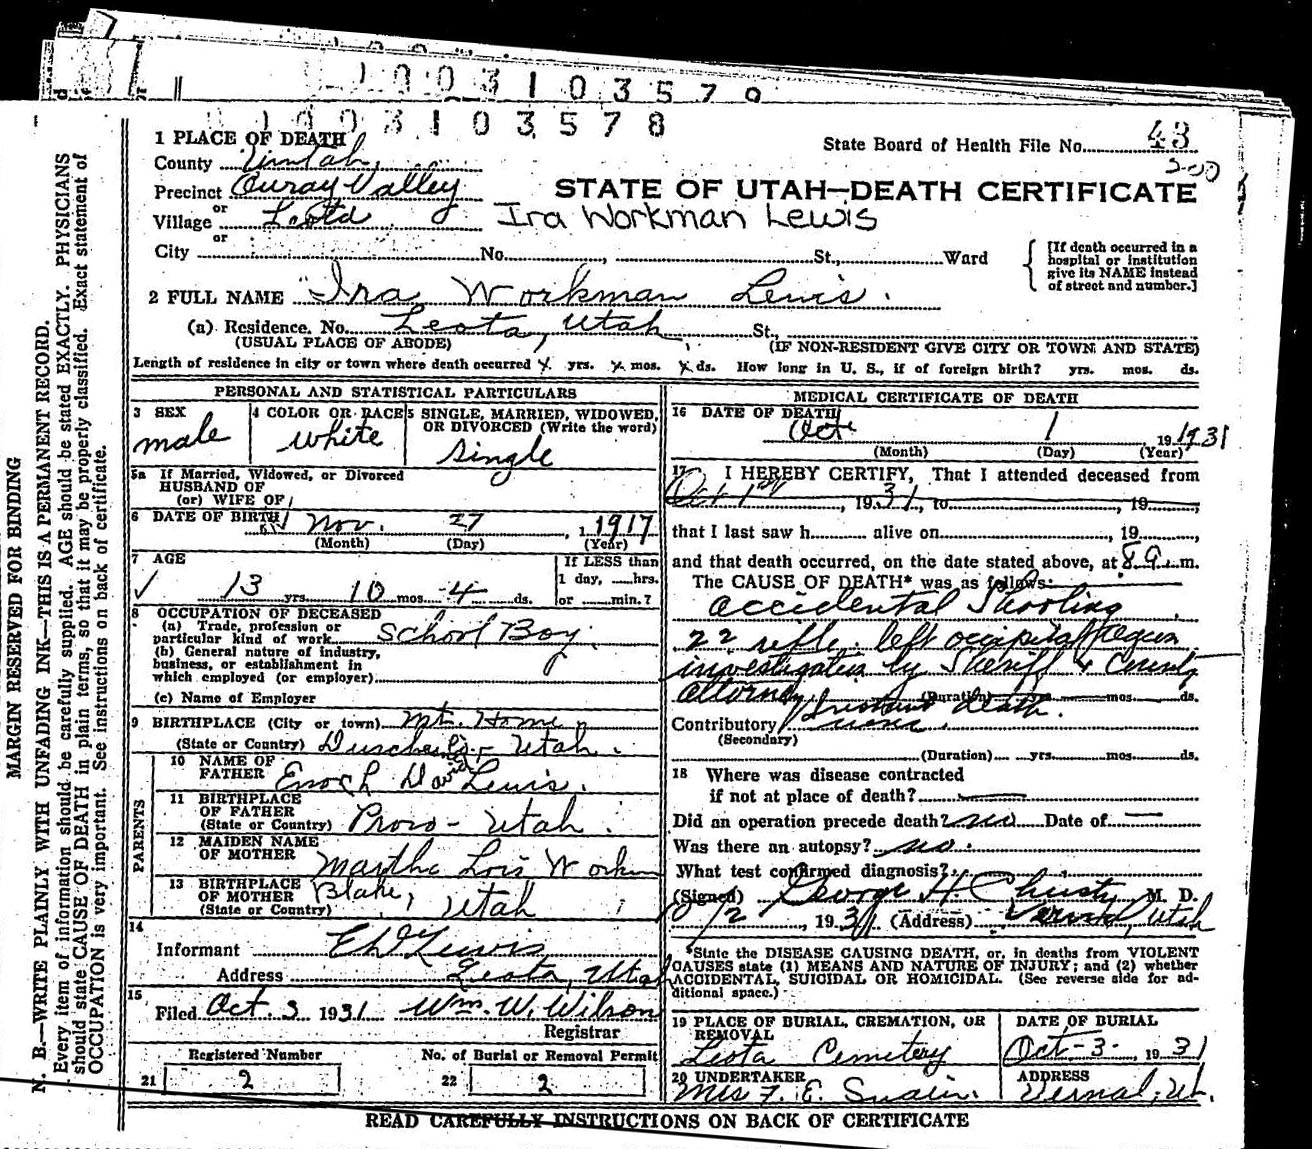 100310 3579
1003103578
1 PLACE OF DEATH
State Board of Health File No. 43
200
County Uintah
Precinct Ouray Valley
STATE OF UTAH—DEATH CERTIFICATE
or
Village Leota
Ira Workman Lewis
or
City No. , St., Ward
[If death occurred in a hospital or institution give its NAME instead of street and number.]
2 FULL NAME Ira Workman Lewis.
(a) Residence. No. Leota, Utah St.,
(USUAL PLACE OF ABODE) (IF NON-RESIDENT GIVE CITY OR TOWN AND STATE)
Length of residence in city or town where death occurred X yrs. X mos. X ds. How long in U. S., if of foreign birth? yrs. mos. ds.
PERSONAL AND STATISTICAL PARTICULARS
3 SEX
male
4 COLOR OR RACE
white
5 SINGLE, MARRIED, WIDOWED, OR DIVORCED (Write the word)
Single
5a If Married, Widowed, or Divorced
HUSBAND OF
(or) WIFE OF
6 DATE OF BIRTH Nov. 27, 1 1917
(Month) (Day) (Year)
7 AGE
13 yrs. 10 mos. 4 ds.
If LESS than
1 day, hrs.
or min.?
8 OCCUPATION OF DECEASED
(a) Trade, profession or particular kind of work School Boy
(b) General nature of industry, business, or establishment in which employed (or employer)
(c) Name of Employer
9 BIRTHPLACE (City or town) Mt. Home
(State or Country) Duschesne - Utah.
PARENTS
10 NAME OF FATHER Enoch David Lewis.
11 BIRTHPLACE OF FATHER
(State or Country) Provo - Utah.
12 MAIDEN NAME OF MOTHER Martha Lois Workm
13 BIRTHPLACE OF MOTHER
(State or Country) Blake, Utah
14
Informant E D Lewis
Address Leota, Utah
15
Filed Oct. 3 1931 Wm. W. Wilson
Registrar
Registered Number
21 2
No. of Burial or Removal Permit
22 2
MEDICAL CERTIFICATE OF DEATH
16 DATE OF DEATH
Oct 1, 19 1931
(Month) (Day) (Year)
17 I HEREBY CERTIFY, That I attended deceased from
Oct 1st, 1931, to , 19 ,
that I last saw h alive on , 19 ,
and that death occurred, on the date stated above, at 8 a. m.
The CAUSE OF DEATH* was as follows:
accidental Shooting
22 rifle. left occipital region
investigation by Sheriff & County
attorney (Duration) yrs. mos. ds.
Instant death.
Contributory none.
(Secondary)
(Duration) yrs. mos. ds.
18 Where was disease contracted
if not at place of death?
Did an operation precede death? no Date of —
Was there an autopsy? no.
What test confirmed diagnosis?
(Signed) George H. Christy M. D.
10/2, 1931 (Address) Vernal, Utah
*State the DISEASE CAUSING DEATH, or, in deaths from VIOLENT CAUSES state (1) MEANS AND NATURE OF INJURY; and (2) whether ACCIDENTAL, SUICIDAL OR HOMICIDAL. (See reverse side for additional space.)
19 PLACE OF BURIAL, CREMATION, OR REMOVAL
Leota Cemetery
DATE OF BURIAL
Oct-3-, 1931
20 UNDERTAKER
Mrs F. E. Swain.
ADDRESS
Vernal, Ut.
READ CAREFULLY INSTRUCTIONS ON BACK OF CERTIFICATE
MARGIN RESERVED FOR BINDING
N. B.—WRITE PLAINLY WITH UNFADING INK—THIS IS A PERMANENT RECORD.
Every item of information should be carefully supplied. AGE should be stated EXACTLY. PHYSICIANS
should state CAUSE OF DEATH in plain terms, so that it may be properly classified. Exact statement of
OCCUPATION is very important. See instructions on back of certificate.